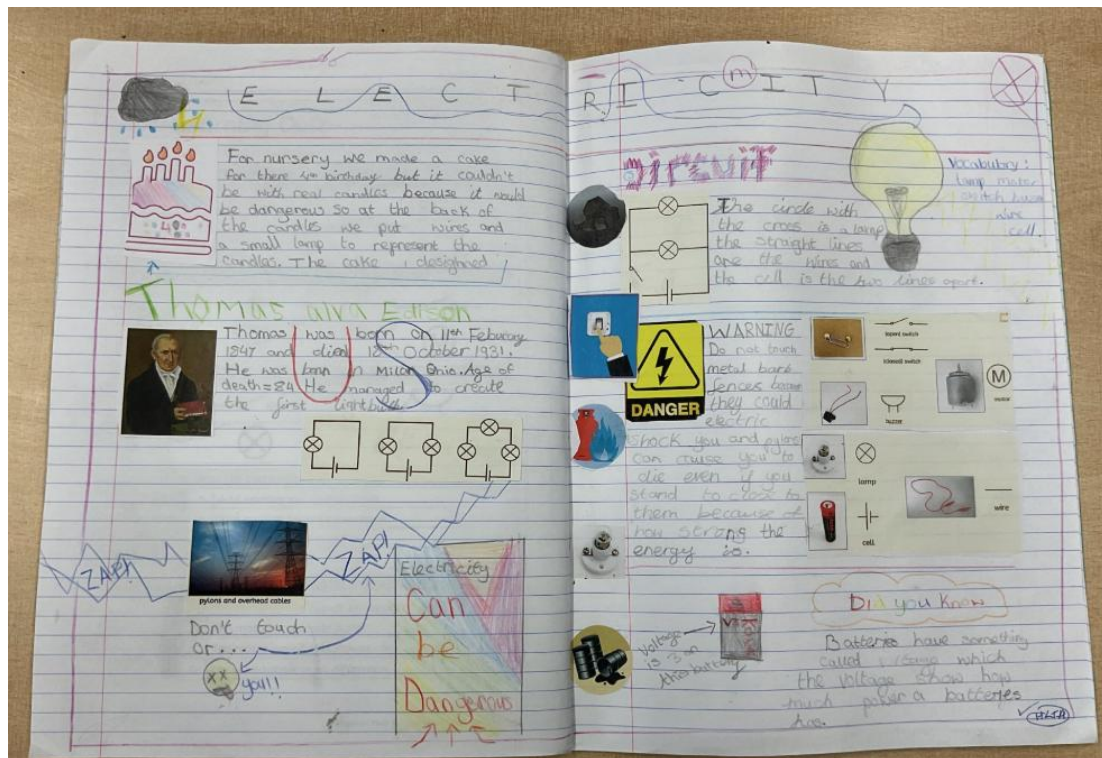 E L E C T R I C I T Y
m
For nursery we made a cake
for there 4th birthday but it couldn't
be with real candles because it would
be dangerous so at the back of
the candles we put wires and
a small lamp to represent the
candles. The cake designed
Thomas alva Edison
Thomas was born on 11th Feburary
1847 and died 18th October 1931.
He was born in Milan Ohio. Age of
death=84 He managed to create
the first lightbulb
US
ZAP!
ZAP!
pylons and overhead cables
Don't touch
or....
you!!
Electricity
Can
be
Dangerous
Circuit
The circle with
the cross is a lamp
the straight lines
are the wires and
the cell is the two lines apart.
Vocabulary:
lamp motor
switch buzzer
wire
cell.
DANGER
WARNING
Do not touch
metal bark
fences because
they could
electric
shock you and pylons
can cause you to
die even if you
stand to close to
them because of
how strong the
energy is.
(open) switch
(closed) switch
M
motor
buzzer
lamp
wire
cell
Voltage
is 3 on
this battery
Did you know
Batteries have something
called voltage which
the voltage show how
much power a batteries
has.